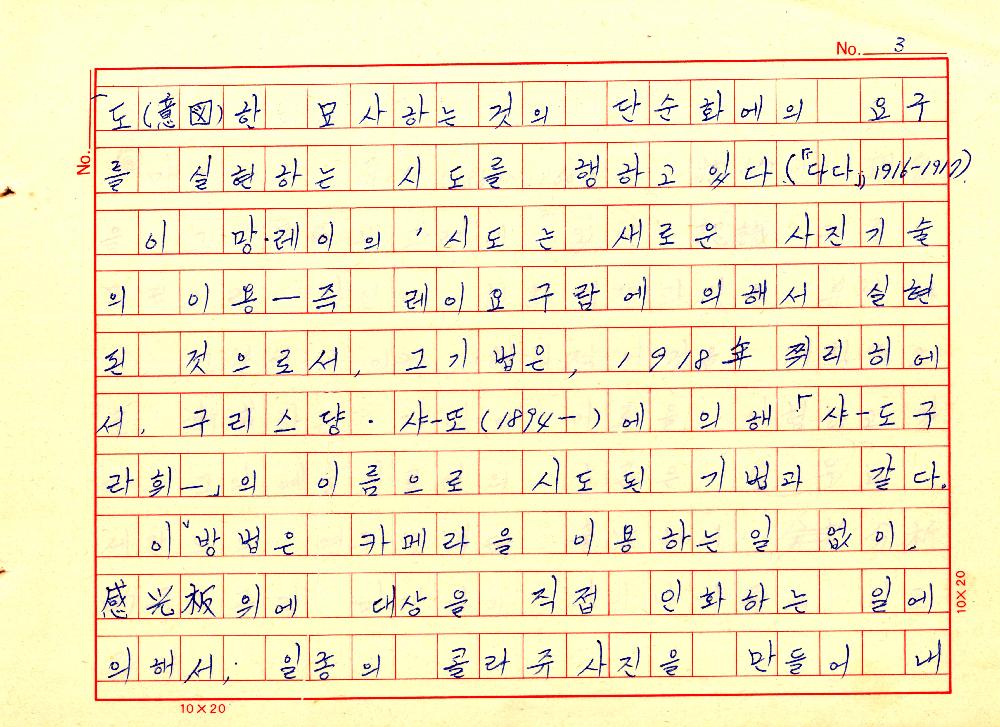 No. 3
「도(意図)한 묘사하는 것의 단순화에의 요구
를 실현하는 시도를 행하고 있다(『다다』, 1916-1917).
이 망·레이의 '시도는 새로운 사진기술
의 이용—즉 레이요구람에 의해서 실현
된 것으로서, 그기법은, 1918年 쮜리히에
서, 구리스댱·샤-또(1894- )에 의해「샤-도구
라휘—」의 이름으로 시도된 기법과 같다.
이 방법은 카메라을 이용하는일 없이,
感光板위에 대상을 직접 인화하는 일에
의해서, 일종의 콜라쥬사진을 만들어 내
No.
10×20
10×20